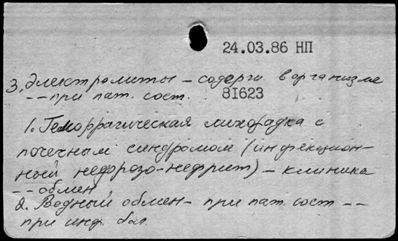 24.03.86 НП
3. Электролиты - содерж в организме
-- при пат. сост. 81623
1. Геморрагическая лихорадка с
почечным синдромом (инфекцион-
ный нефрозо-нефрит) - клиника
-- обмен
2. Водный обмен - при пат. сост --
при инф. бол.